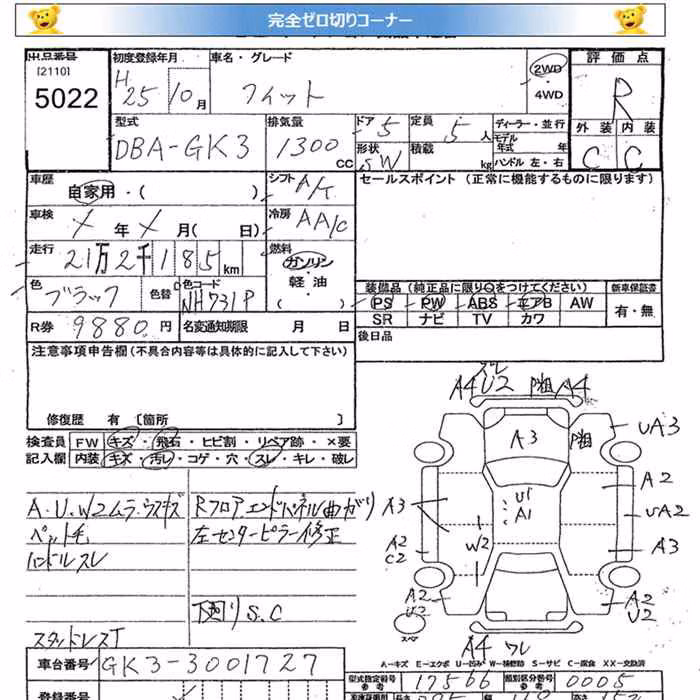 完全ゼロ切りコーナー
出品番号 初度登録年月 車名・グレード 評価点
[2110]
5022
H25 10月 フィット 2WD・4WD R
型式 排気量 ドア 5 定員 5人 ディーラー・並行 外装 内装
DBA-GK3 1300cc 形状 SW 積載 kg モデル年式 年 C C
ハンドル 左・右
車歴 自家用・( ) シフト A/T セールスポイント (正常に機能するものに限ります)
車検 X年X月( 日) 冷房 AA/C
走行 21万2千185km 燃料 ガソリン・軽油
色 ブラック 色替 色コード NH731P
装備品 (純正品に限り○をつけてください) 新車保証書
PS PW ABS エアB AW 有・無
SR ナビ TV カワ
R券 9880円 名変通知期限 月 日 後日品
注意事項申告欄 (不具合内容等は具体的に記入して下さい)
修復歴 有 [箇所 ]
検査員記入欄 FW キズ・飛石・ヒビ割・リペア跡・×要
内装 キズ・汚レ・コゲ・穴・スレ・キレ・破レ
A.U.W2ムラ.ウスキズ Rフロアエンドパネル曲ガリ
ペット毛 左センターピラー修正
ハンドルスレ
下廻り S.C
スタッドレスT
スレ
A4 U2 P粗 A4
A3 P粗 UA3
A2
U1
A1
A3 UA2
W2 A3
A2
C2
A2
U2
A2
U2
スペア
A4 ワレ
A-キズ E-エクボ U-凹み W-補修跡 S-サビ C-腐食 XX-交換済
車台番号 GK3-3001727 型式指定番号 参考 17566 類別区分番号 参考 0005
登録番号